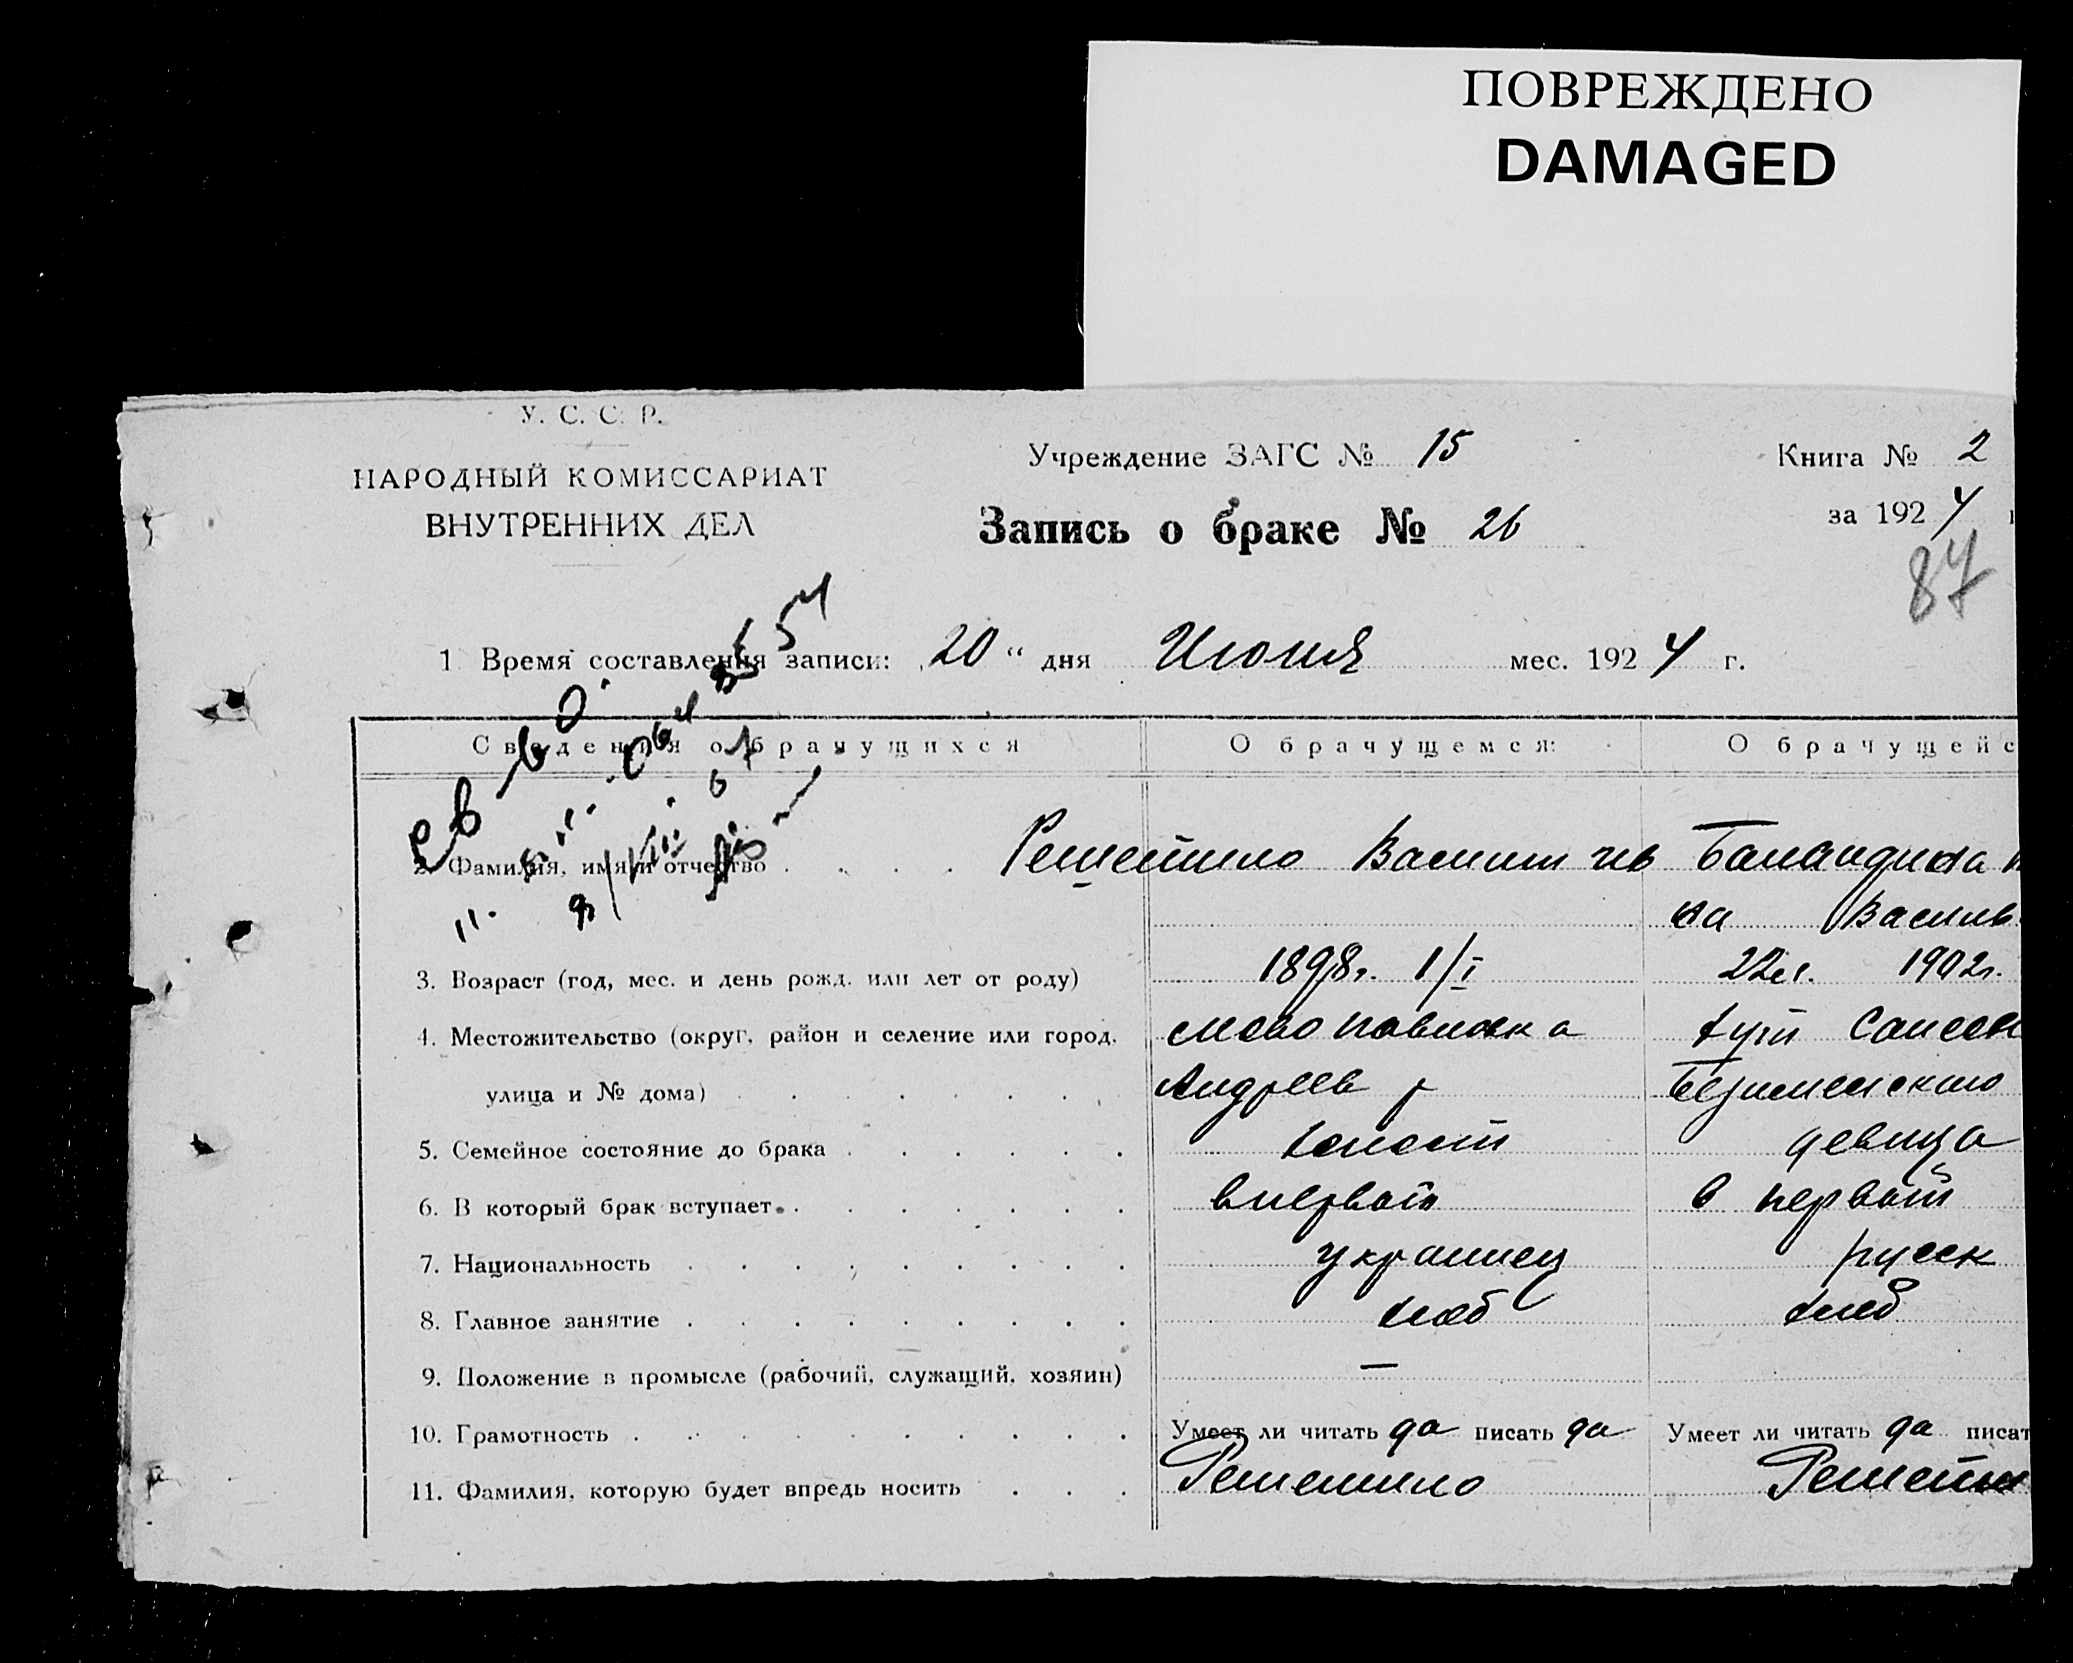 ПОВРЕЖДЕНО
DAMAGED
У. С. С. Р.
НАРОДНЫЙ КОМИССАРИАТ
ВНУТРЕННИХ ДЕЛ
Учреждение ЗАГС № 15
Книга № 2
Запись о браке № 26
за 1924
87
1 Время составления записи: 20 " дня Июня мес. 1924 г.
Сведения о брачущихся О брачущемся: О брачущейс
2. Фамилия, имя и отчество Решетило Васили Ив Баландина
на Василь
3. Возраст (год, мес. и день рожд. или лет от роду) 1898г. 1/I 22л. 1902г.
4. Местожительство (округ, район и селение или город, Ново павловка
улица и № дома) Андреев р
5. Семейное состояние до брака холост девица
6. В который брак вступает впервой в первой
7. Национальность украинец русск
8. Главное занятие хлеб хлеб
9. Положение в промысле (рабочий, служащий, хозяин) —
10. Грамотность Умеет ли читать да писать да Умеет ли читать да писат
11. Фамилия, которую будет впредь носить Решетило Решетил